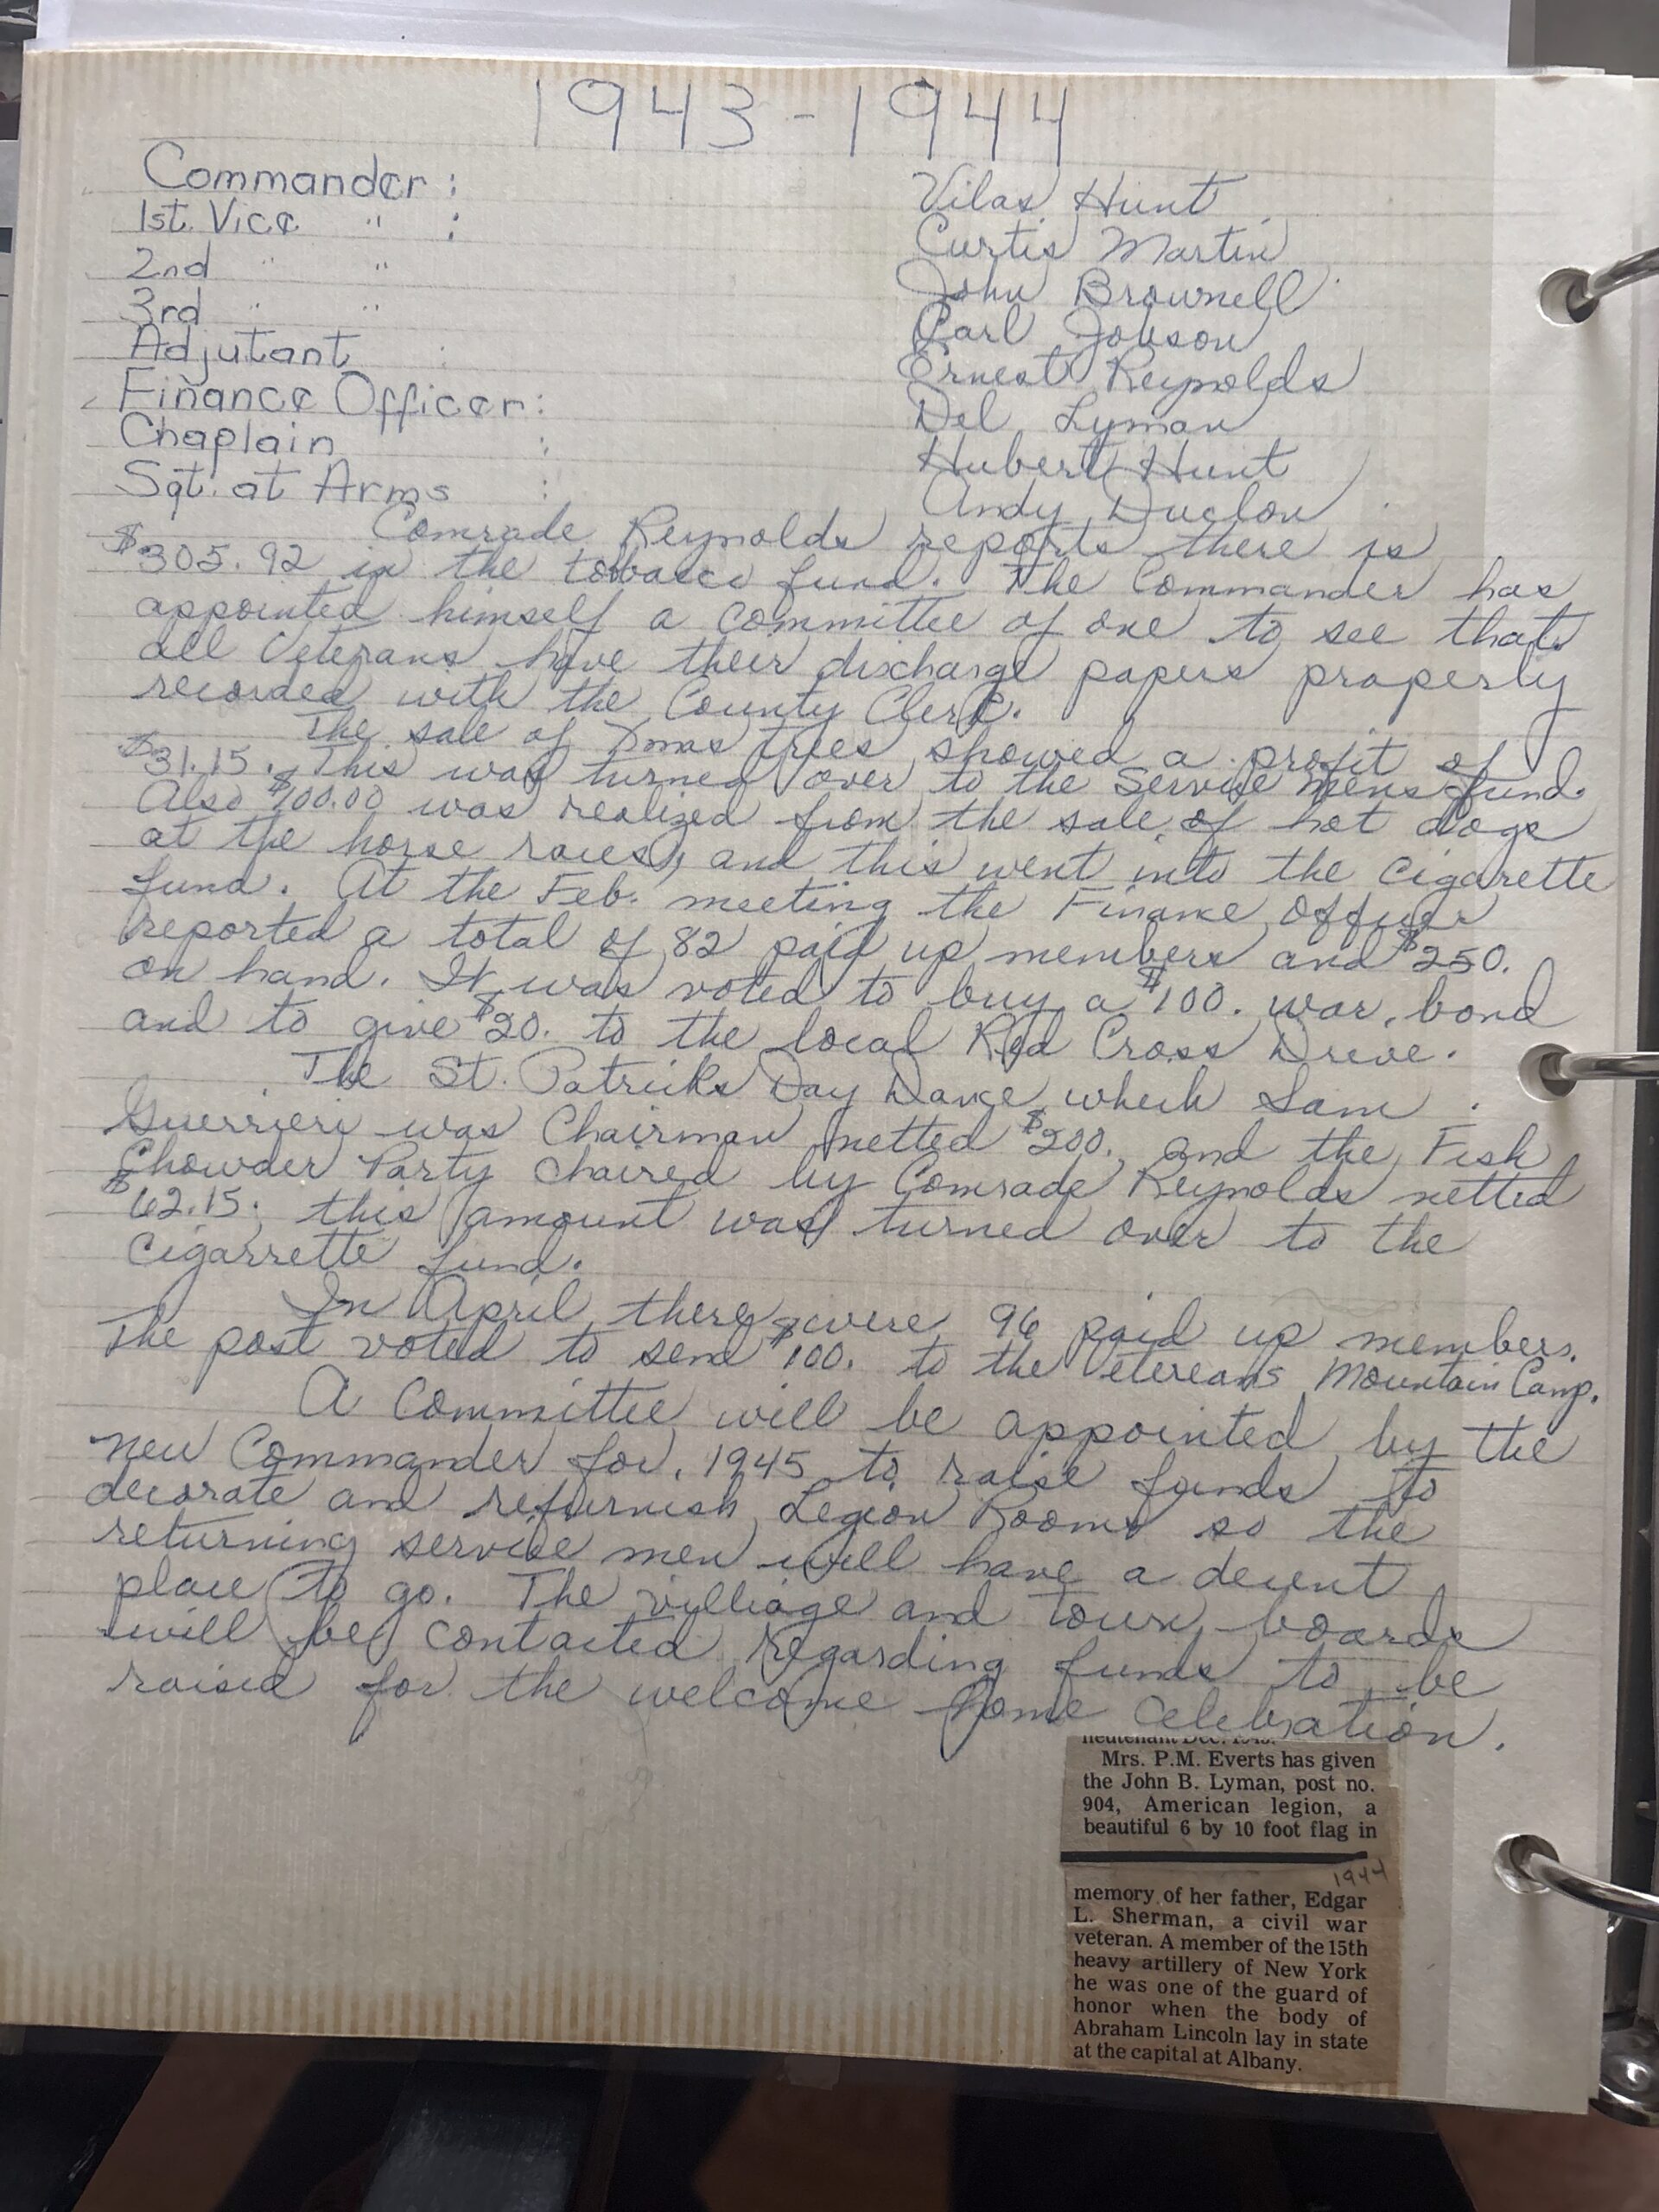 1943-1944
Commander : Vilas Hunt
1st. Vice " : Curtis Martin
2nd " " John Brownell
3rd " " Carl Jobson
Adjutant : Ernest Reynolds
Finance Officer : Del Lyman
Chaplain : Hubert Hunt
Sgt. at Arms : Andy Duclon
Comrade Reynolds reports there is
$305.92 in the tobacco fund. The Commander has
appointed himself a committee of one to see that
all Veterans have their discharge papers properly
recorded with the County Clerk.
The sale of Xmas trees showed a profit of
$31.15. This was turned over to the Service mens fund.
Also $100.00 was realized from the sale of hot dogs
at the horse races, and this went into the cigarette
fund. At the Feb. meeting the Finance Officer
reported a total of 82 paid up members and $250.
on hand. It was voted to buy a $100. war bond
and to give $20. to the local Red Cross Drive.
The St. Patricks Day Dance which Sam
Guerrieri was Chairman netted $200. and the Fish
Chowder Party chaired by Comrade Reynolds netted
$62.15; this amount was turned over to the
Cigarrette fund.
In April there were 96 paid up members.
The post voted to send $100. to the Vetereans Mountain Camp.
A Committee will be appointed by the
new Commander for 1945 to raise funds to
decorate and refurnish Legion Rooms so the
returning service men will have a decent
place to go. The villiage and town boards
will be contacted regarding funds to be
raised for the welcome home celebration.
lieutenant Dec.
Mrs. P.M. Everts has given
the John B. Lyman, post no.
904, American legion, a
beautiful 6 by 10 foot flag in
1944
memory of her father, Edgar
L. Sherman, a civil war
veteran. A member of the 15th
heavy artillery of New York
he was one of the guard of
honor when the body of
Abraham Lincoln lay in state
at the capital at Albany.